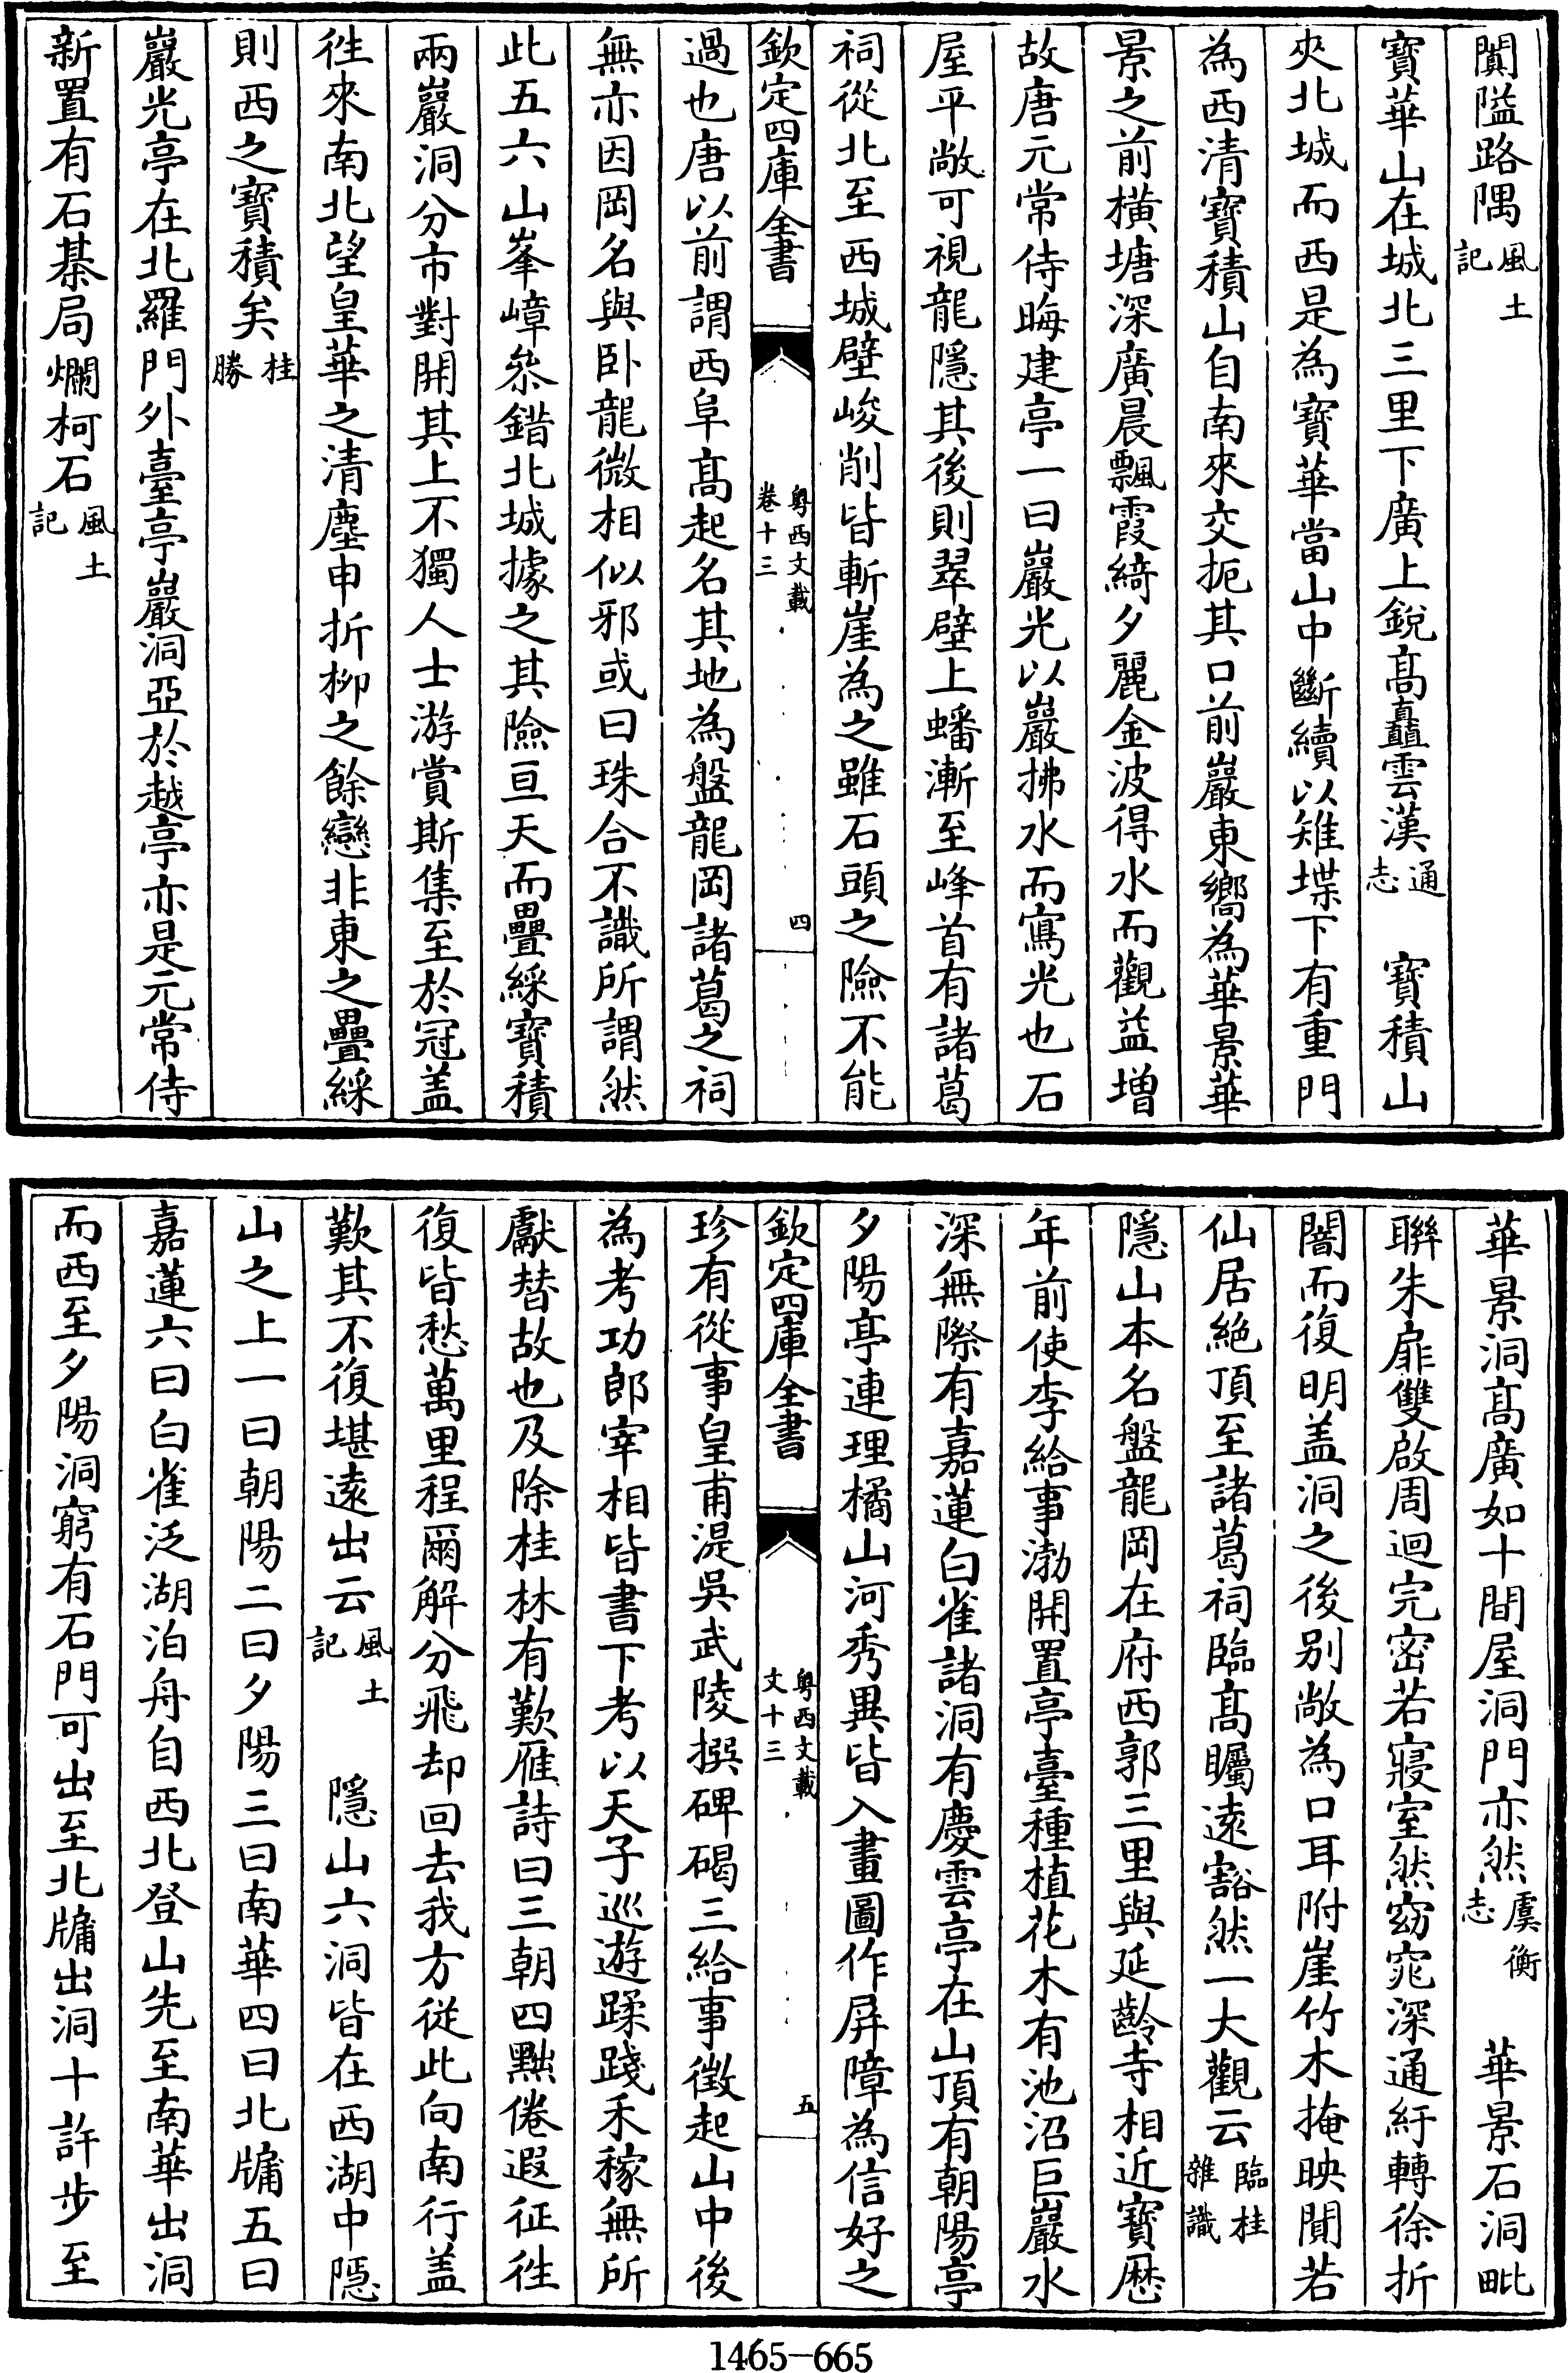 闐隘路隅風土記
寶華山在城北三里下廣上鋭髙矗雲漢通志　寶積山
夾北城而西是為寶華當山中斷續以雉堞下有重門
為西清寶積山自南來交扼其口前巖東嚮為華景華
景之前橫塘深廣晨飄霞綺夕麗金波得水而觀益增
故唐元常侍晦建亭一曰巖光以巖拂水而寫光也石
屋平敞可視龍隱其後則翠壁上蟠漸至峰首有諸葛
祠從北至西城壁峻削皆斬崖為之雖石頭之險不能
欽定四庫全書　粤西文載卷十三　四
過也唐以前謂西阜髙起名其地為盤龍岡諸葛之祠
無亦因岡名與卧龍微相似邪或曰珠合不識所謂然
此五六山峯嶂叅錯北城據之其險亘天而疊綵寶積
兩巖洞分市對開其上不獨人士游賞斯集至於冠盖
徃來南北望皇華之清塵申折栁之餘戀非東之疊綵
則西之寶積矣桂勝
巖光亭在北羅門外臺亭巖洞亞於越亭亦是元常侍
新置有石棊局爛柯石風土記
華景洞髙廣如十間屋洞門亦然虞衡志　華景石洞毗
聯朱扉雙啟周迴完密若寢室然窈窕深通紆轉徐折
闇而復明盖洞之後别敞為口耳附崖竹木掩映閴若
仙居絶頂至諸葛祠臨髙矚遠豁然一大觀云臨桂雜識
隱山本名盤龍岡在府西郭三里與延齡寺相近寶歴
年前使李給事渤開置亭臺種植花木有池沼巨巖水
深無際有嘉蓮白雀諸洞有慶雲亭在山頂有朝陽亭
夕陽亭連理橘山河秀異皆入畫圖作屏障為信好之
欽定四庫全書　粤西文載文十三　五
珍有從事皇甫湜吳武陵撰碑碣三給事徵起山中後
為考功郎宰相皆書下考以天子巡遊蹂踐禾稼無所
獻替故也及除桂林有歎雁詩曰三朝四黜倦遐征徃
復皆愁萬里程爾解分飛却回去我方從此向南行盖
歎其不復堪遠出云風土記　隱山六洞皆在西湖中隱
山之上一曰朝陽二曰夕陽三曰南華四曰北牖五曰
嘉蓮六曰白雀泛湖泊舟自西北登山先至南華出洞
而西至夕陽洞窮有石門可出至北牖出洞十許步至
1465-665